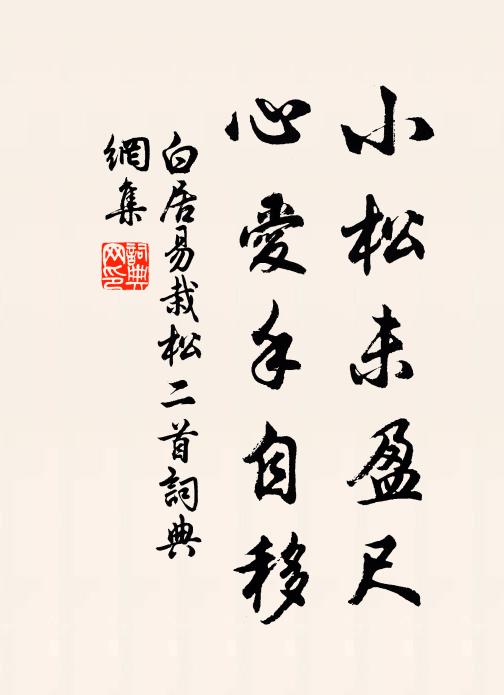 小松未盈尺
心愛手自移
白居易栽松二首詞典
網集
詞典
网印